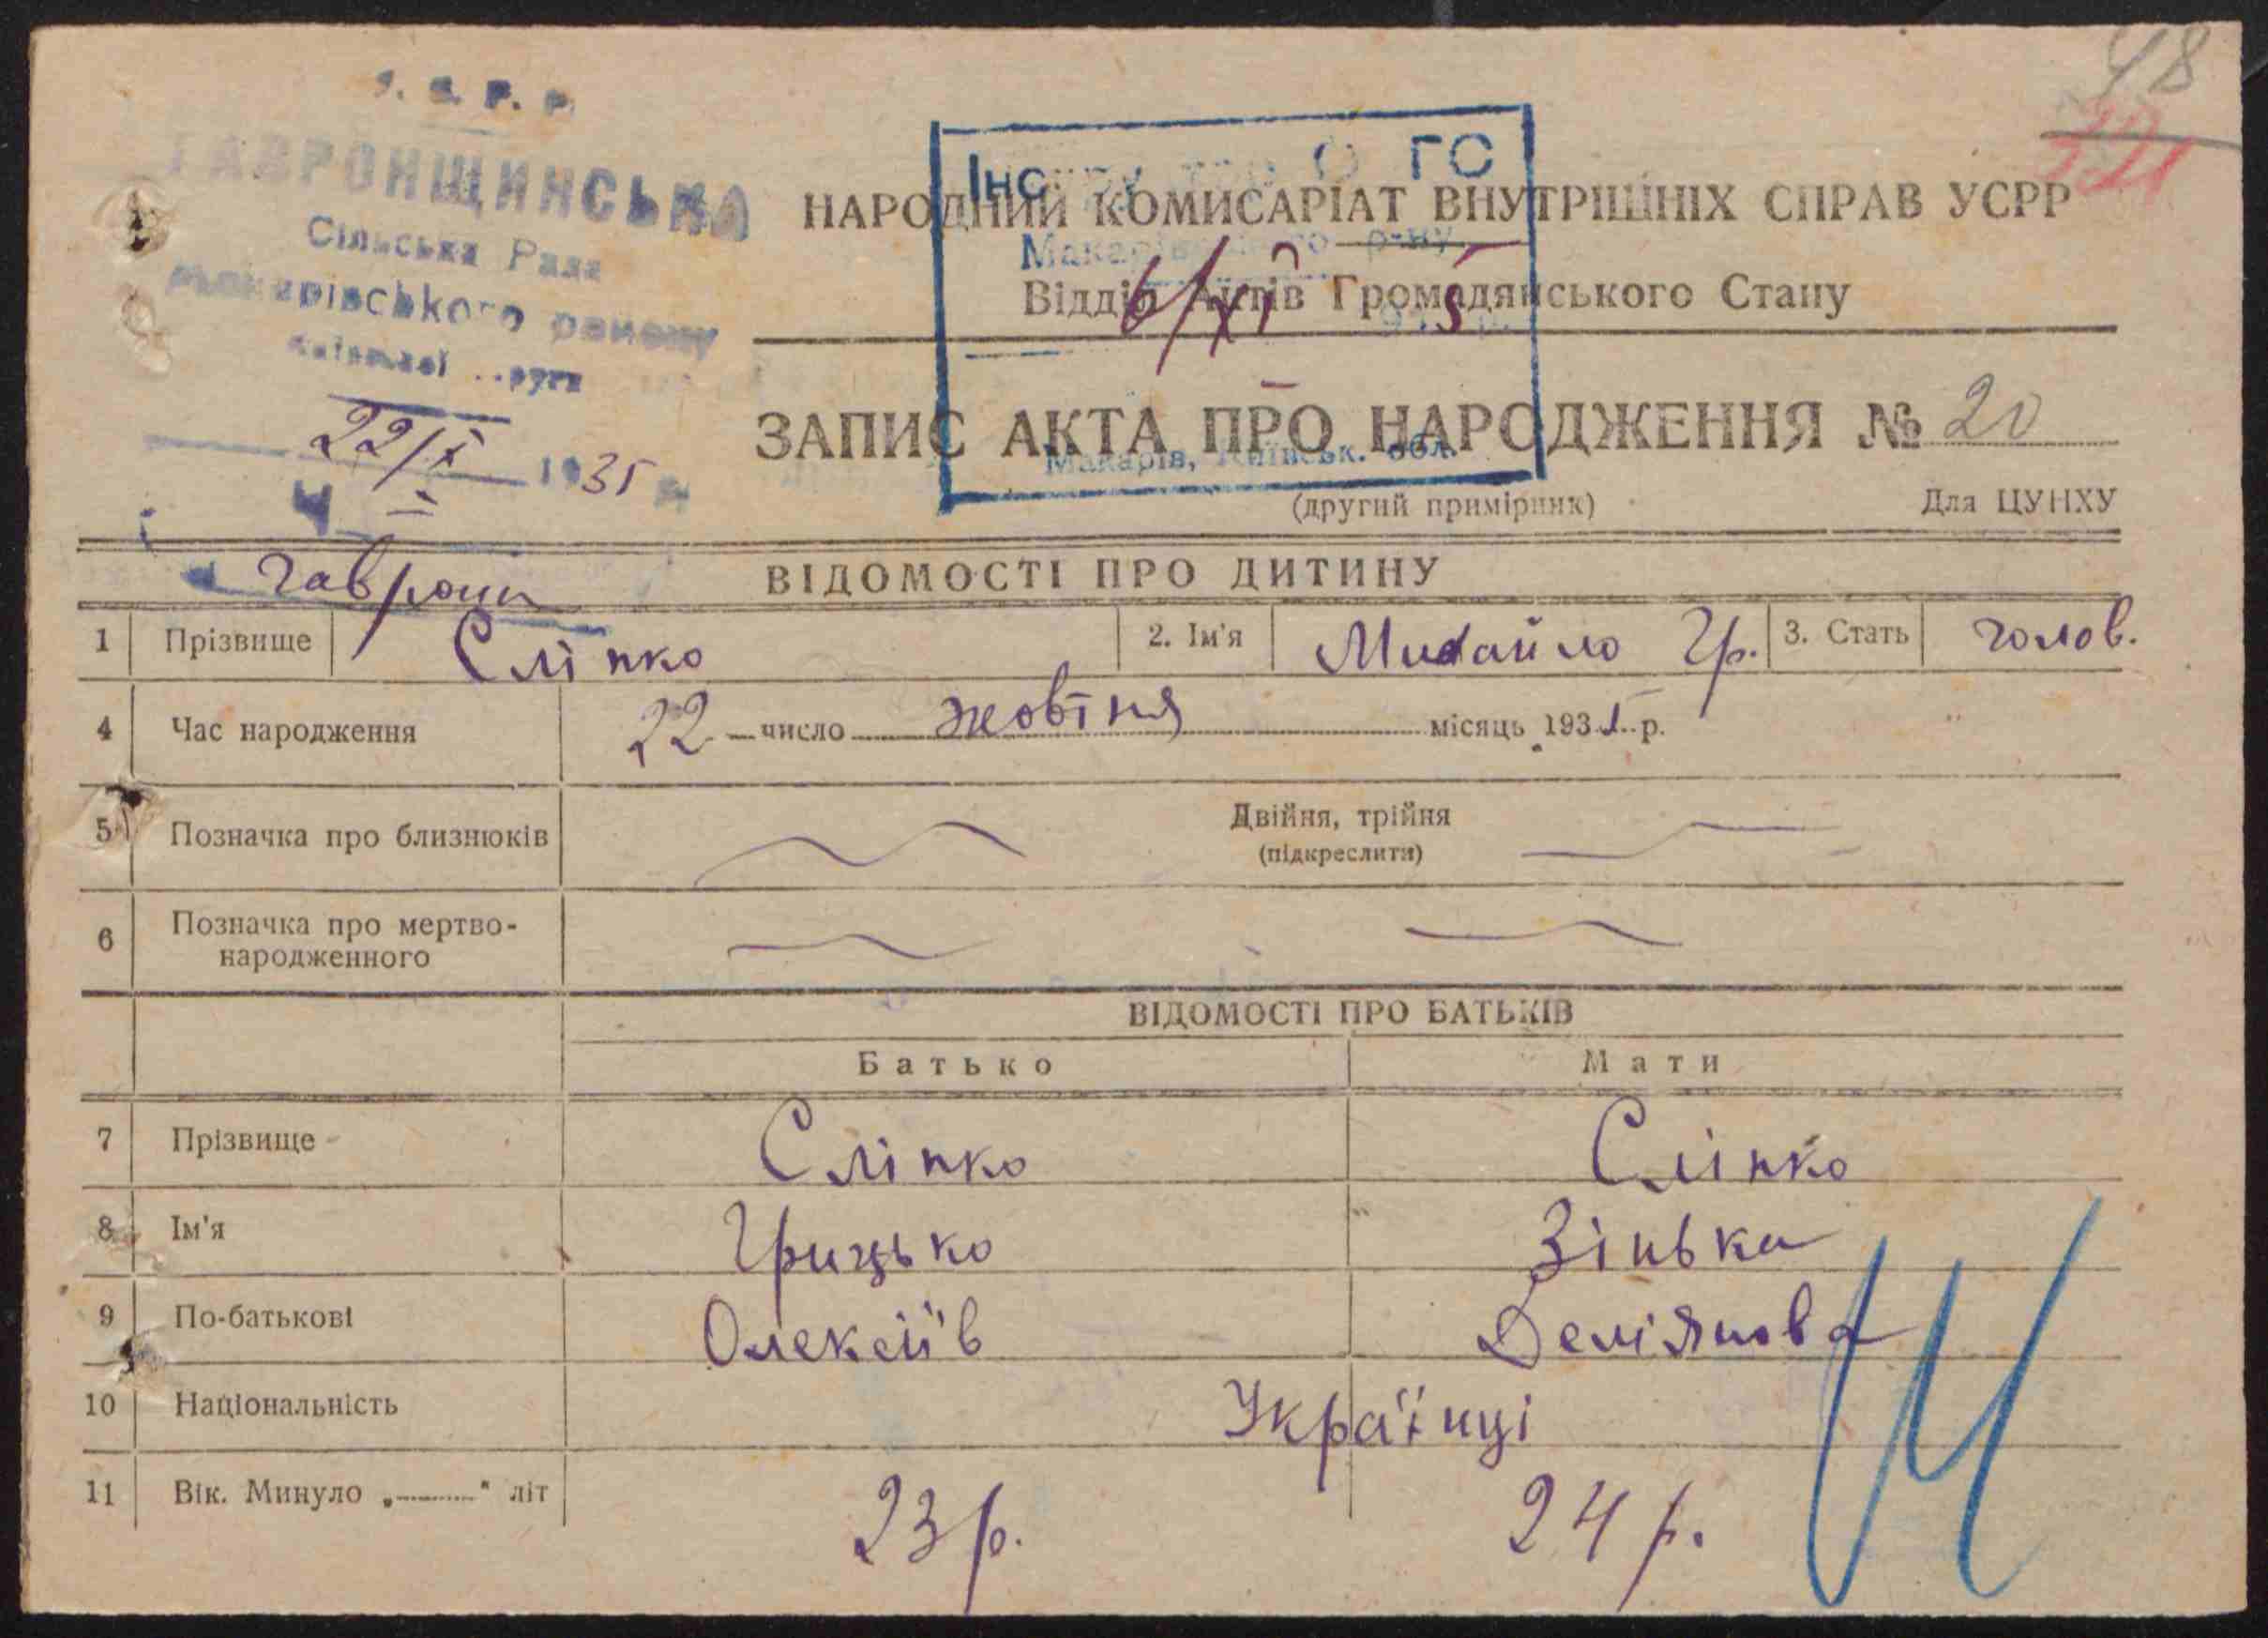 48
ГАВРОНЩИНСЬКА
Сільська Рада
Макарівського району
22/X 1935
Гаврон
ГС
Макарів, Київськ. обл.
6/XI 5
НАРОДНИЙ КОМИСАРІАТ ВНУТРІШНІХ СПРАВ УСРР
Відділ Актів Громадянського Стану
ЗАПИС АКТА ПРО НАРОДЖЕННЯ № 20
(другий примірник) Для ЦУНХУ
ВІДОМОСТІ ПРО ДИТИНУ
1 Прізвище Сліпко 2. Ім'я Михайло Гр. 3. Стать голов.
4 Час народження 22 число жовтня місяць 1935 р.
5 Позначка про близнюків Двійня, трійня
(підкреслити)
6 Позначка про мертво-
народженного
ВІДОМОСТІ ПРО БАТЬКІВ
Батько Мати
7 Прізвище Сліпко Сліпко
8 Ім'я Грицько Зінька
9 По-батькові Олексіїв Деміянова
10 Національність Українці
11 Вік. Минуло „ " літ 23 р. 24 р.